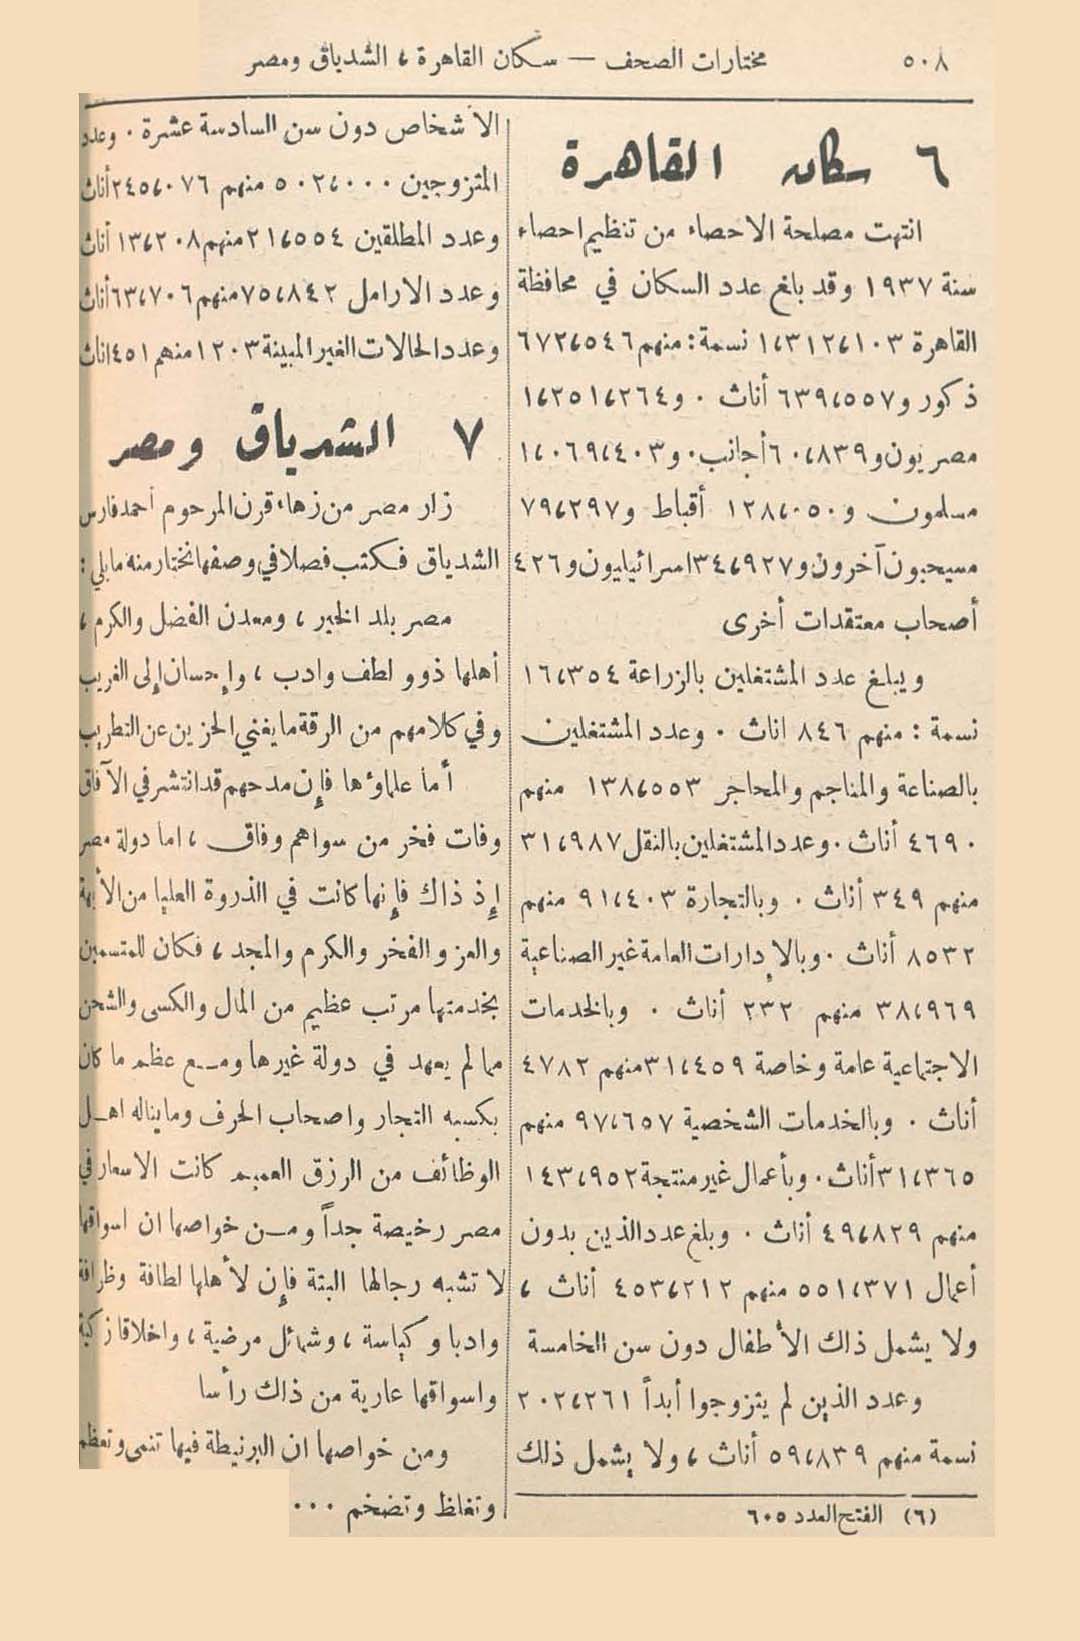 ٥٠٨
مختارات الصحف — سكان القاهرة ، الشدياق ومصر
٦ سكان القاهرة
انتهت مصلحة الاحصاء من تنظيم احصاء
سنة ١٩٣٧ وقد بلغ عدد السكان في محافظة
القاهرة ١،٣١٢،١٠٣ نسمة : منهم ٦٧٢،٥٤٦
ذكور و٦٣٩،٥٥٧ أناث . و١،٢٥١،٢٦٤
مصريون و٦٠،٨٣٩ أجانب . و١،٠٦٩،٤٠٣
مسلمون و١٢٨،٠٥٠ أقباط و٧٩،٢٩٧
مسيحيون آخرون و٣٤،٩٢٧ اسرائيليون و٤٢٦
أصحاب معتقدات أخرى
ويبلغ عدد المشتغلين بالزراعة ١٦،٣٥٤
نسمة : منهم ٨٤٦ اناث . وعدد المشتغلين
بالصناعة والمناجم والمحاجر ١٣٨،٥٥٣ منهم
٤٦٩٠ أناث . وعدد المشتغلين بالنقل ٣١،٩٨٧
منهم ٣٤٩ أناث . وبالتجارة ٩١،٤٠٣ منهم
٨٥٣٢ أناث . وبالإدارات العامة غير الصناعية
٣٨،٩٦٩ منهم ٢٣٢ أناث . وبالخدمات
الاجتماعية عامة وخاصة ٣١،٤٥٩ منهم ٤٧٨٢
أناث . وبالخدمات الشخصية ٩٧،٦٥٧ منهم
٣١،٣٦٥ أناث . وبأعمال غير منتجة ١٤٣،٩٥٢
منهم ٤٩،٨٢٩ أناث . وبلغ عدد الذين بدون
أعمال ٥٥١،٣٧١ منهم ٤٥٣،٢١٢ أناث ،
ولا يشمل ذلك الأطفال دون سن الخامسة
وعدد الذين لم يتزوجوا أبداً ٢٠٢،٢٦١
نسمة منهم ٥٩،٨٣٩ أناث ، ولا يشمل ذلك
(٦) الفتح العدد ٦٠٥
الأشخاص دون سن السادسة عشرة . وعدد
المتزوجين ٥٠٢،٠٠٠ منهم ٢٤٥،٠٧٦ أناث
وعدد المطلقين ٢١،٥٥٤ منهم ١٣،٢٠٨ أناث
وعدد الارامل ٧٥،٨٤٢ منهم ٦٣،٧٠٦ أناث
وعدد الحالات الغير المبينة ١٢٠٣ منهم ٤٥١ اناث
٧ الشدياق ومصر
زار مصر من زهاء قرن المرحوم أحمد فارس
الشدياق فكتب فصلا في وصفها نختار منه مايلي :
مصر بلد الخير ، ومعدن الفضل والكرم ،
أهلها ذوو لطف وادب ، وإحسان إلى الغريب
وفي كلامهم من الرقة ما يغني الحزين عن التطريب
أما علماؤها فإن مدحهم قد انتشر في الآفاق
وفات فخر من سواهم وفاق ، اما دولة مصر
إذ ذاك فإنها كانت في الذروة العليا من الأبهة
والعز والفخر والكرم والمجد ، فكان للمتسمين
بخدمتها مرتب عظيم من المال والكسى والشحن
مما لم يعهد في دولة غيرها ومع عظم ما كان
بكسبه التجار واصحاب الحرف وما يناله اهل
الوظائف من الرزق العميم كانت الاسعار في
مصر رخيصة جداً ومن خواصها ان اسواقها
لا تشبه رجالها البتة فإن لأهلها لطافة وظرافة
وادبا وكياسة ، وشمائل مرضية ، واخلاقا زكية
واسواقها عارية من ذلك رأسا
ومن خواصها ان البرنيطة فيها تنمى وتعظم
وتغلظ وتضخم ...